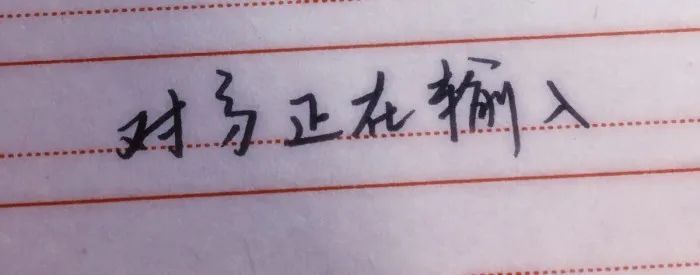 对方正在输入